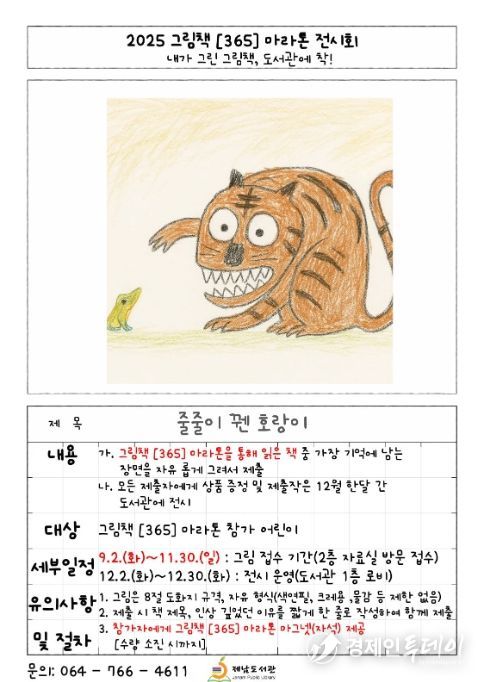 2025 그림책 [365] 마라톤 전시회
내가 그린 그림책, 도서관에 착!
제 목
줄줄이 꿴 호랑이
내용
가. 그림책 [365] 마라톤을 통해 읽은 책 중 가장 기억에 남는
장면을 자유 롭게 그려서 제출
나. 모든 제출자에게 상품 증정 및 제출작은 12월 한달 간
도서관에 전시
대상
그림책 [365] 마라톤 참가 어린이
세부일정
9.2.(화)~11.30.(일) : 그림 접수 기간(2층 자료실 방문 접수)
12.2.(화)~12.30.(화) : 전시 운영(도서관 1층 로비)
유의사항
및 절차
1. 그림은 8절 도화지 규격, 자유 형식(색연필, 크레용 ,물감 등 제한 없음)
2. 제출 시 책 제목, 인상 깊었던 이유를 짧게 한 줄로 작성하여 함께 제출
3. 참가자에게 그림책 [365] 마라톤 마그넷(자석) 제공
[수량 소진 시까지]
경제인투데이
문의: 064 - 766 - 4611
제남도서관
Jenam Public Library